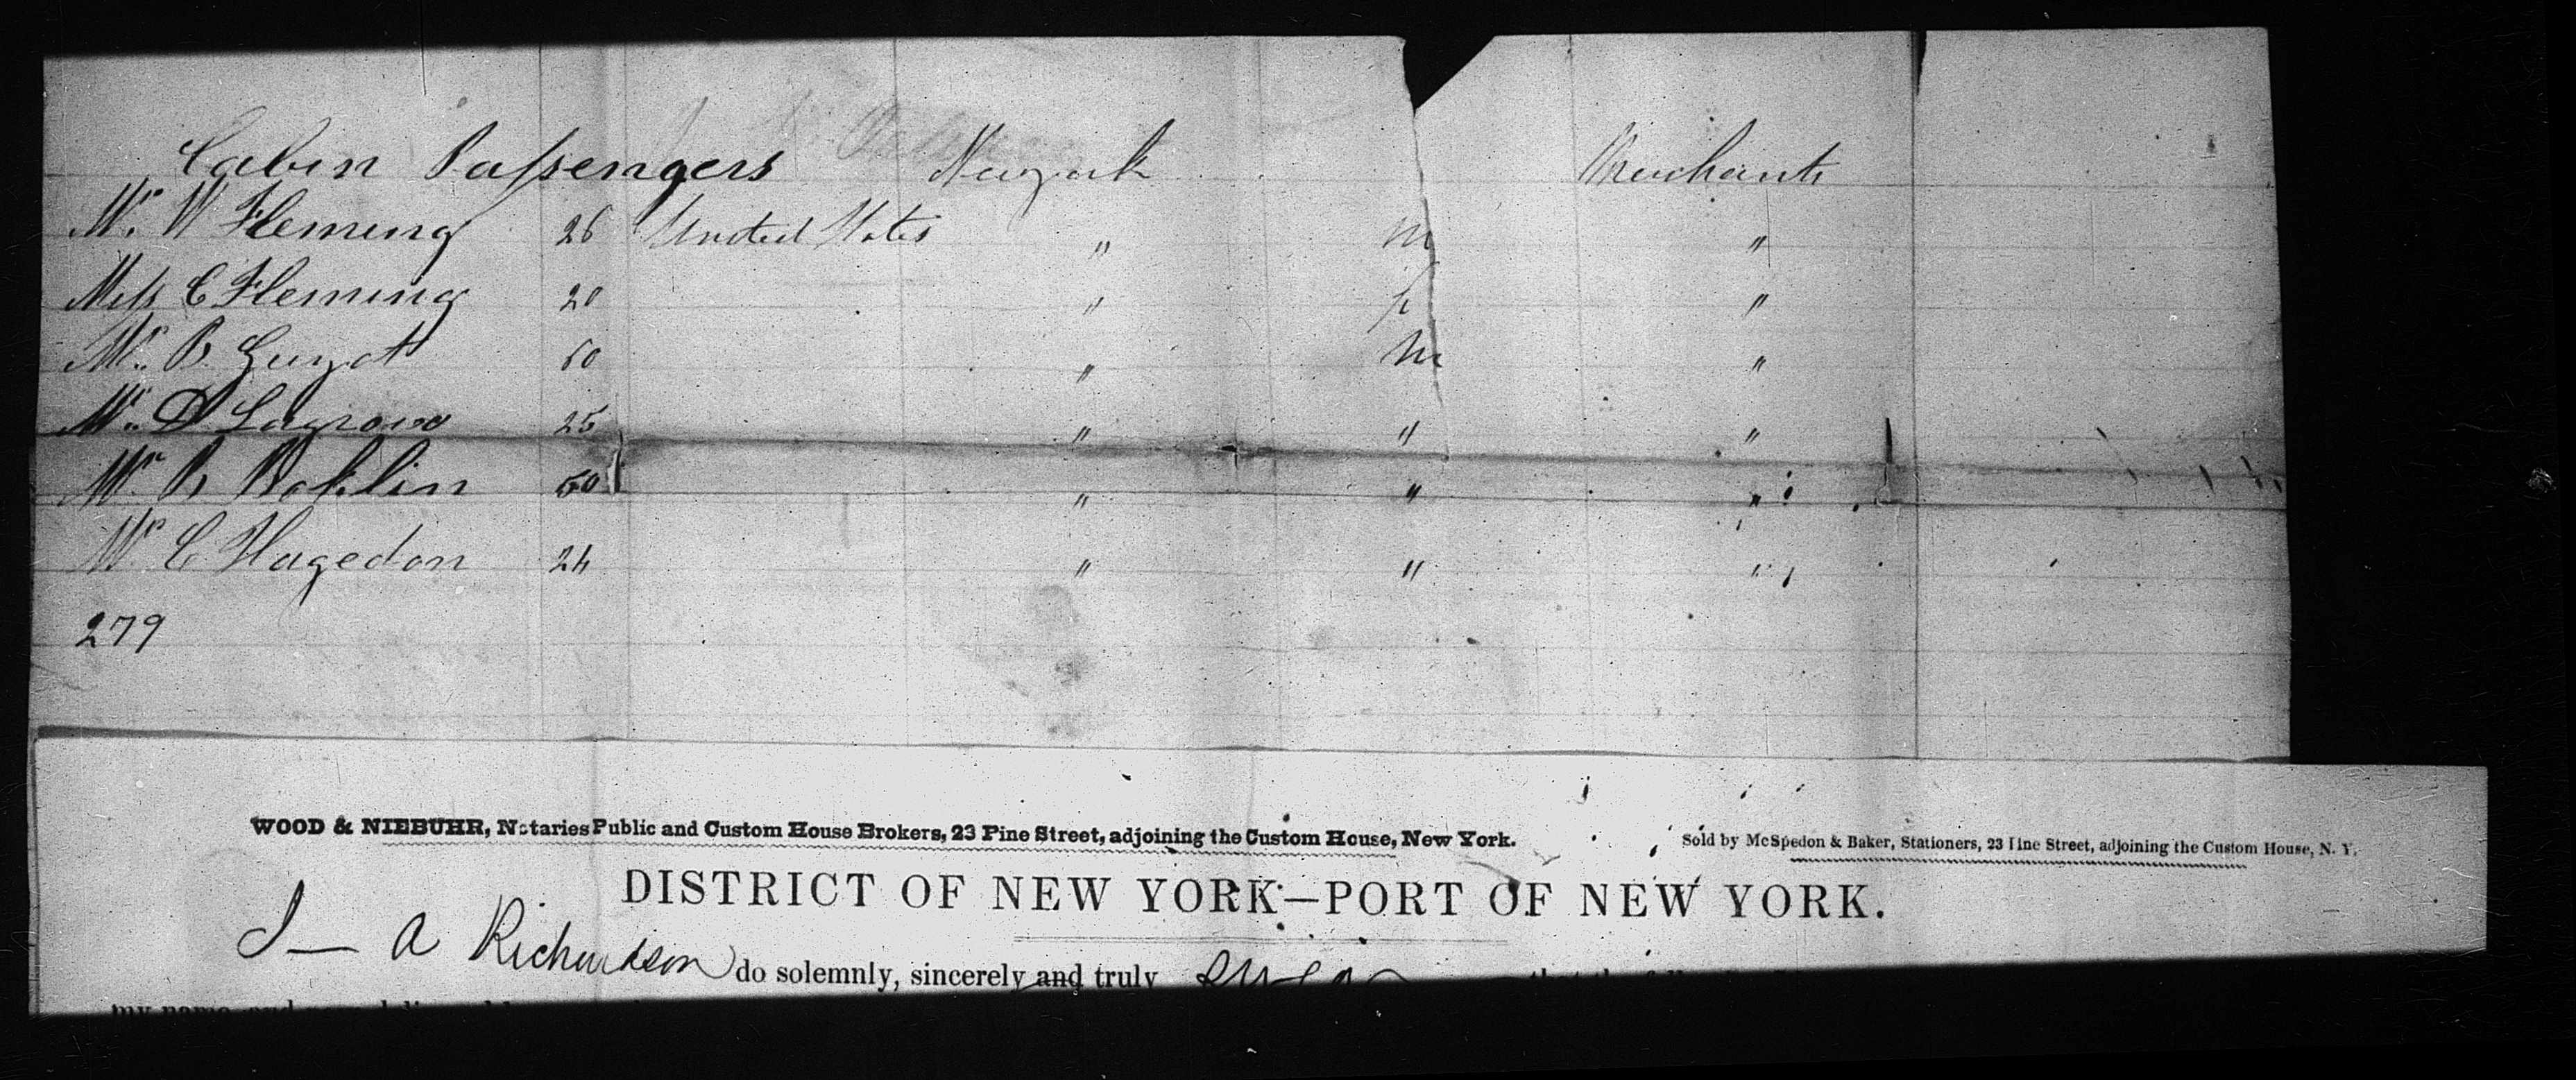 Cabin Passengers Newyork Merchants
Mr. W Fleming 26 United States " m "
Miss C Fleming 20 " f "
Mr. B. Guyot 60 " m "
Mr. D 25 " " "
Mr. B 50 " " "
Mr C Hagedon 24 " " "
279
WOOD & NIEBUHR, Notaries Public and Custom House Brokers, 23 Pine Street, adjoining the Custom House, New York.
Sold by McSpedon & Baker, Stationers, 23 Pine Street, adjoining the Custom House, N. Y.
DISTRICT OF NEW YORK—PORT OF NEW YORK.
I— A Richardson do solemnly, sincerely and truly swear
my name